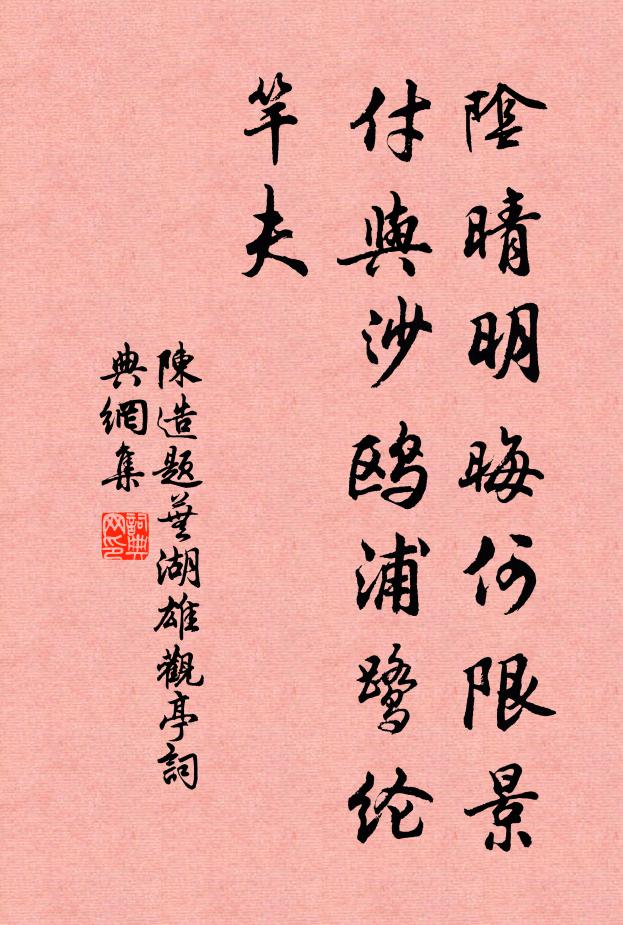 陰晴明晦何限景
付與沙鷗浦鷺纶
竿夫
陳造題蕪湖雄觀亭詞
典網集
詞典
网印